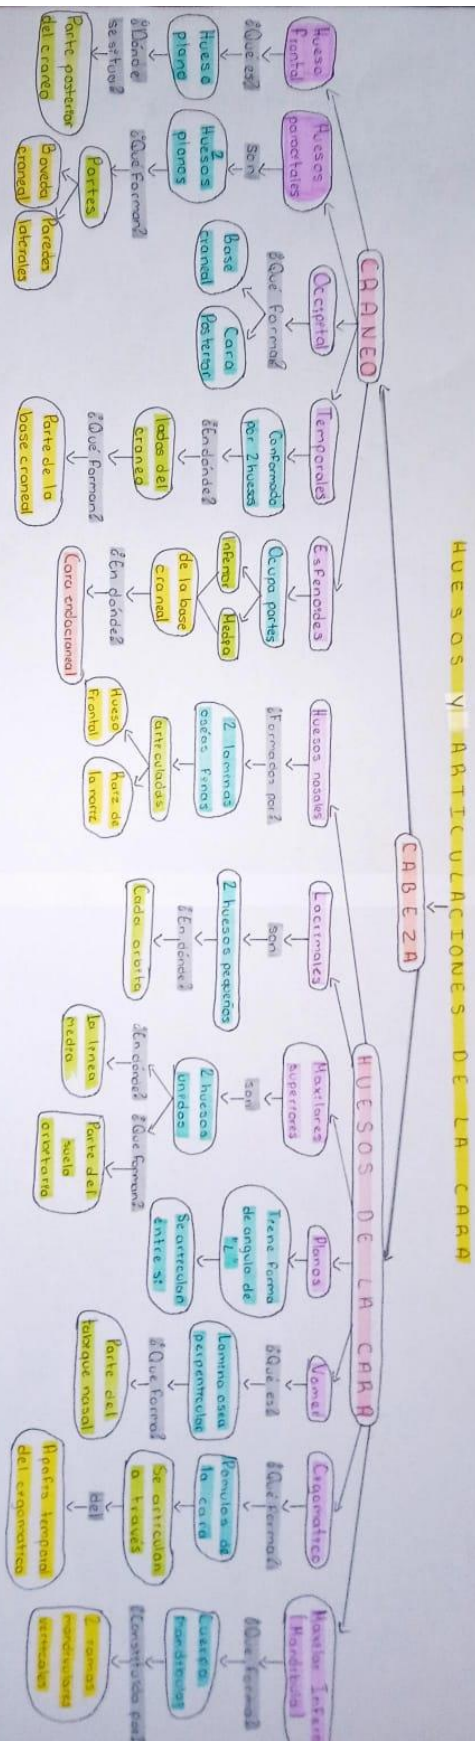 HUESOS Y ARTICULACIONES DE LA CARA
CABEZA
CRANEO
HUESOS DE LA CARA
Hueso
frontal
¿Qué es?
Hueso
plano
¿Dónde
se situa?
Parte posterior
del craneo
Huesos
parietales
son
2
Huesos
planos
¿Qué forman?
Partes
Boveda
craneal
Paredes
laterales
Occipital
¿Qué forma?
Base
craneal
Cara
Posterior
Temporales
Conformada
por 2 huesos
¿En dónde?
lados del
craneo
¿Qué forman?
Parte de la
base craneal
Esfenoides
Ocupa partes
Inferior
Media
de la base
craneal
¿En dónde?
Cara endocraneal
Huesos nasales
¿Formados por?
2 laminas
oséas finas
articuladas
Hueso
frontal
Raíz de
la nariz
Lacrimales
son
2 huesos pequeños
¿En dónde?
Cada orbita
Maxilares
superiores
son
2 huesos
unidos
¿En dónde?
La linea
media
¿Que forman?
Parte del
suelo
orbitario
Planos
Tiene forma
de angulo de
"L"
Se articulan
entre si
Vomer
¿Qué es?
Lamina osea
perpenticular
¿Que forma?
Parte del
tabique nasal
Cigomatico
¿Qué forma?
Pomulos de
la cara
Se articulan
a través
del
Apofisis temporal
del cigomatico
Maxilar Infer
(Mandibula)
¿Que forma?
Cuerpo
mandibulas
¿Constituida por?
2 ramas
mandivulares
verticales